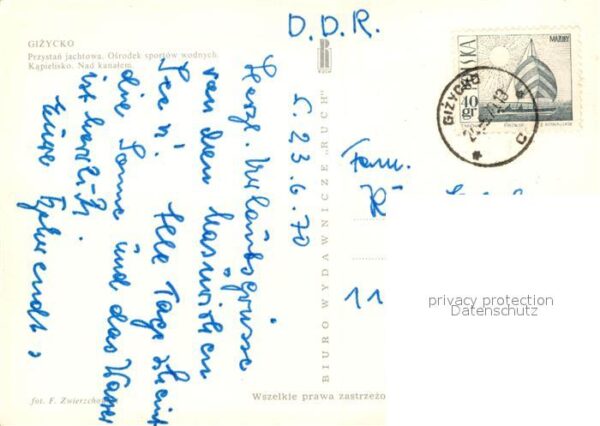 GIŻYCKO
Przystań jachtowa. Ośrodek sportów wodnych.
Kąpielisko. Nad kanałem.
D.D.R.
23.6.70
Herzl. Urlaubsgrüsse
von den Masurischen
Seen. Alle Tage scheint
die Sonne und das Wasser
ist herrlich
Eure
BIURO WYDAWNICZE „RUCH"
Fam.
11
POLSKA
MAZURY
40
gr
GIŻYCKO
privacy protection
Datenschutz
fot. F. Zwierzcho
Wszelkie prawa zastrzeżo